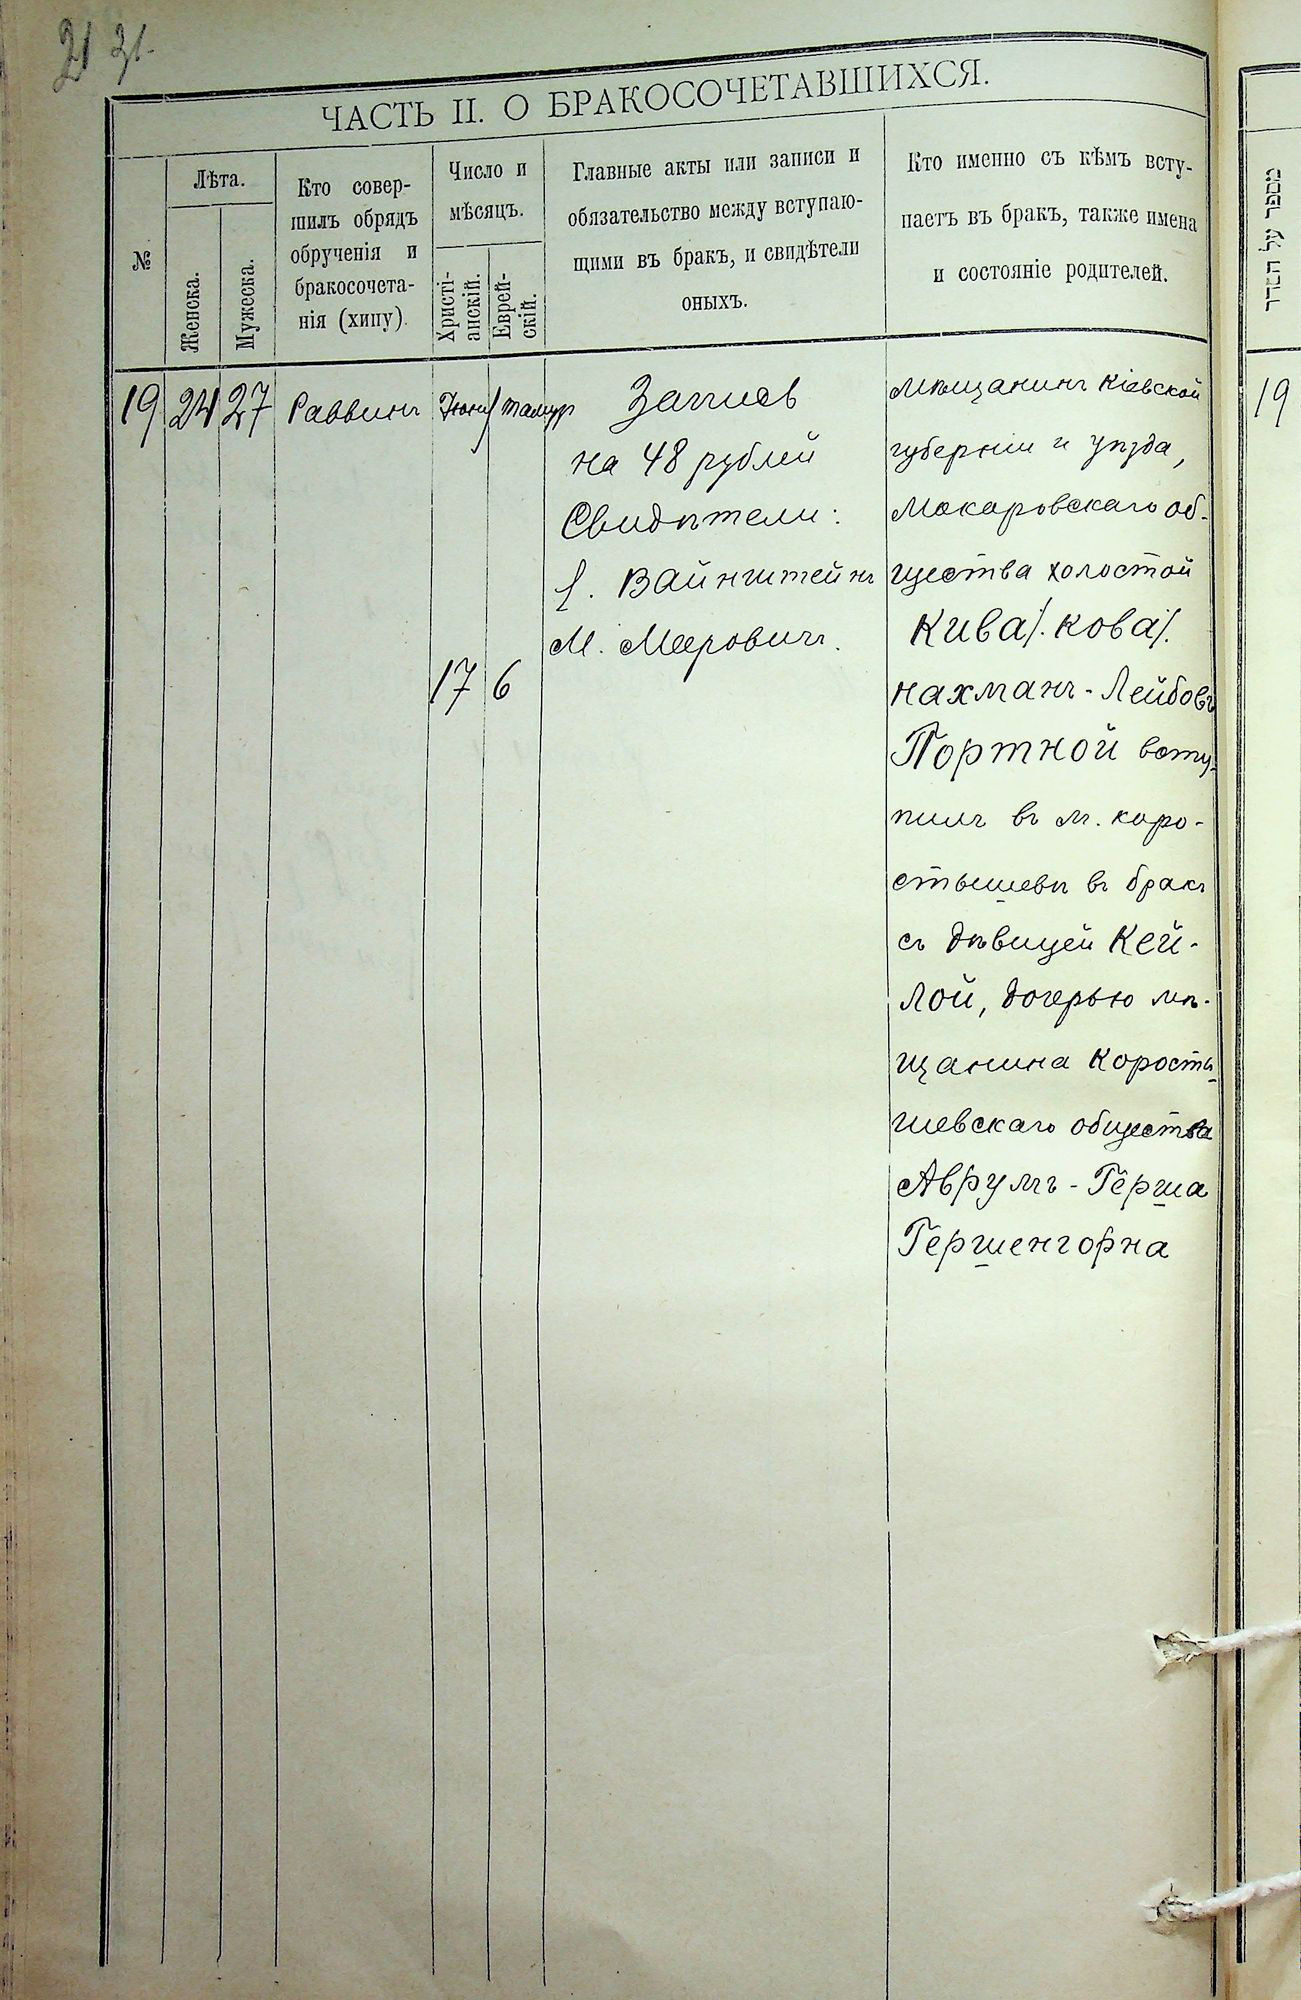 21 31.
ЧАСТЬ II. О БРАКОСОЧЕТАВШИХСЯ.
№
Лѣта.
Женска.
Мужеска.
Кто совер-
шилъ обрядъ
обрученія и
бракосочета-
нія (хипу).
Число и
мѣсяцъ.
Христі-
анскій.
Еврей-
скій.
Главные акты или записи и
обязательство между вступаю-
щими въ бракъ, и свидѣтели
оныхъ.
Кто именно съ кѣмъ всту-
паетъ въ бракъ, также имена
и состояніе родителей.
19
24
27
Раввинъ
Іюня
Тамуз
17
6
Запись
на 48 рублей
Свидѣтели:
Вайнштейнъ
М. Меерович.
мѣщанинъ Кіевской
губерніи и уѣзда,
Макаровскаго об-
щества холостой
Кива /. кова /.
Нахманъ-Лейбовъ
Портной всту-
пилъ въ м. Коро-
стышевѣ въ бракъ
съ дѣвицей Кей-
лой, дочерью мѣ-
щанина Коросты-
шевскаго общества
Аврумъ-Герша
Гершенгорна
מספר על הסדר
19